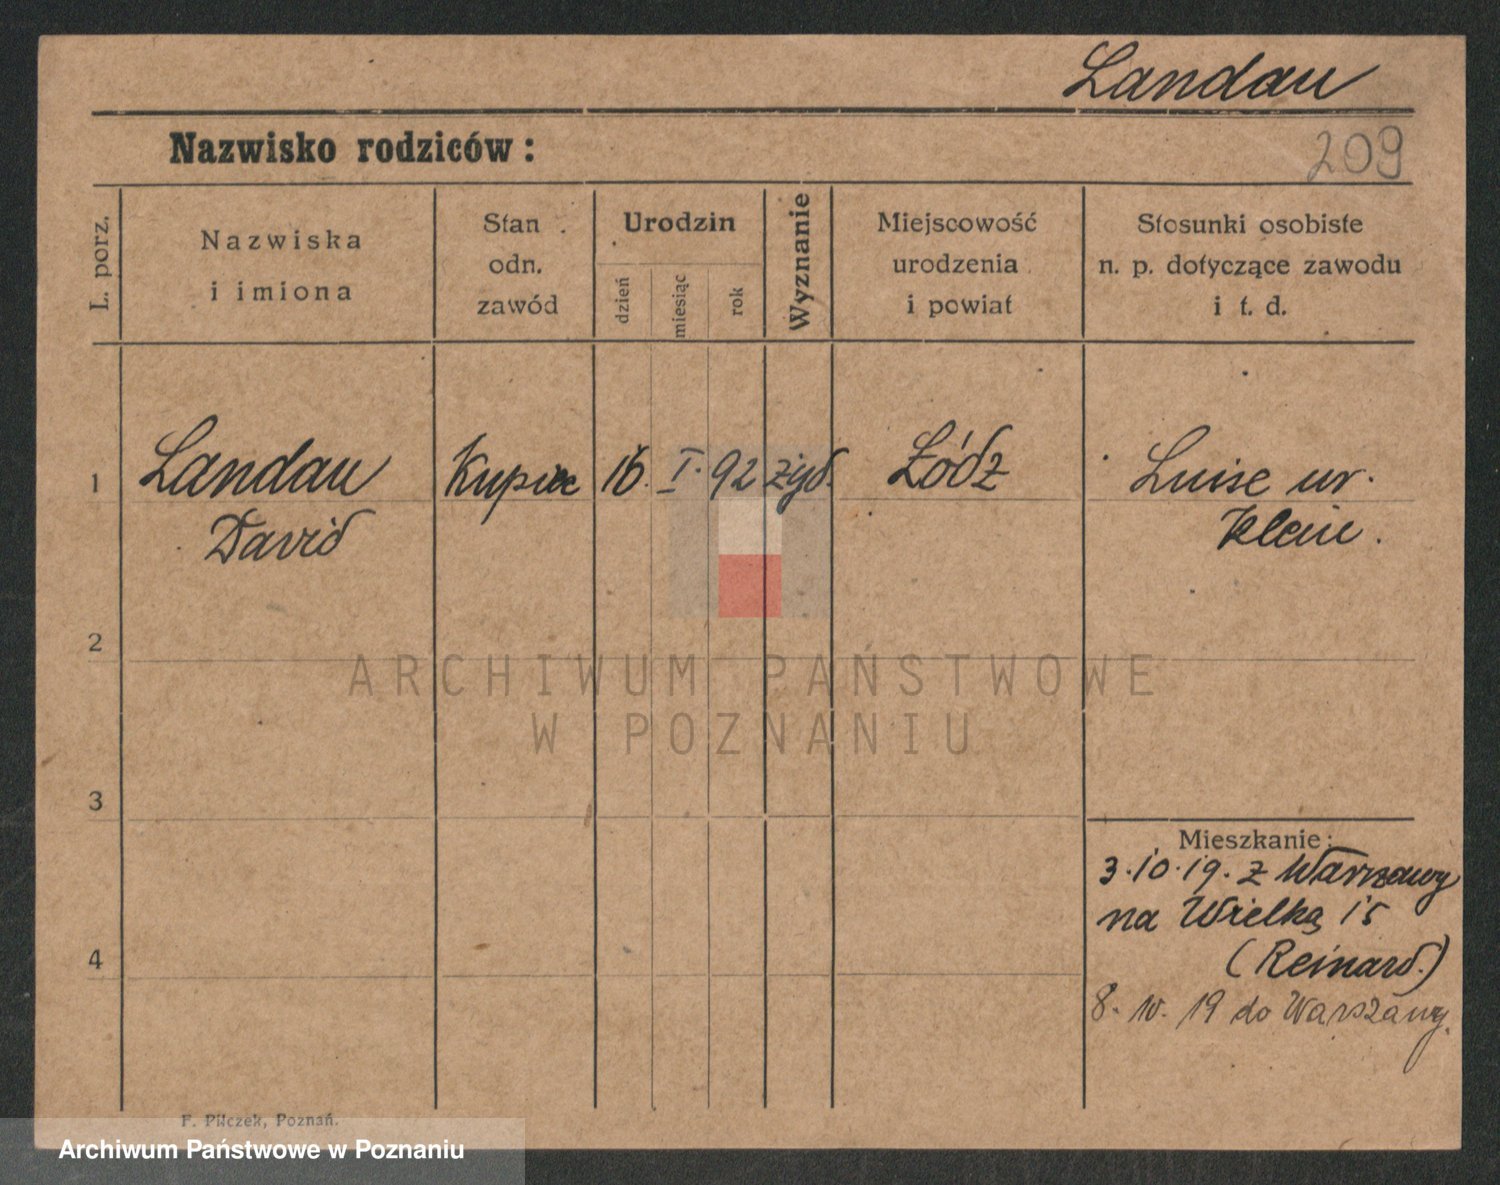 Landau
Nazwisko rodziców :
209
L. porz.
Nazwiska
i imiona
Stan
odn.
zawód
Urodzin
dzień
miesiąc
rok
Wyznanie
Miejscowość
urodzenia
i powiat
Stosunki osobiste
n. p. dotyczące zawodu
i t. d.
1
Landau
David
Kupiec
16. I. 92
żyd.
Łódz
Luise ur.
Klein.
2
3
4
Mieszkanie:
3.10.19. z Warszawy
na Wielką 15
(Reinard.)
8. 10. 19 do Warszawy.
F. Pilczek, Poznań.
ARCHIWUM PAŃSTWOWE
W POZNANIU
Archiwum Państwowe w Poznaniu